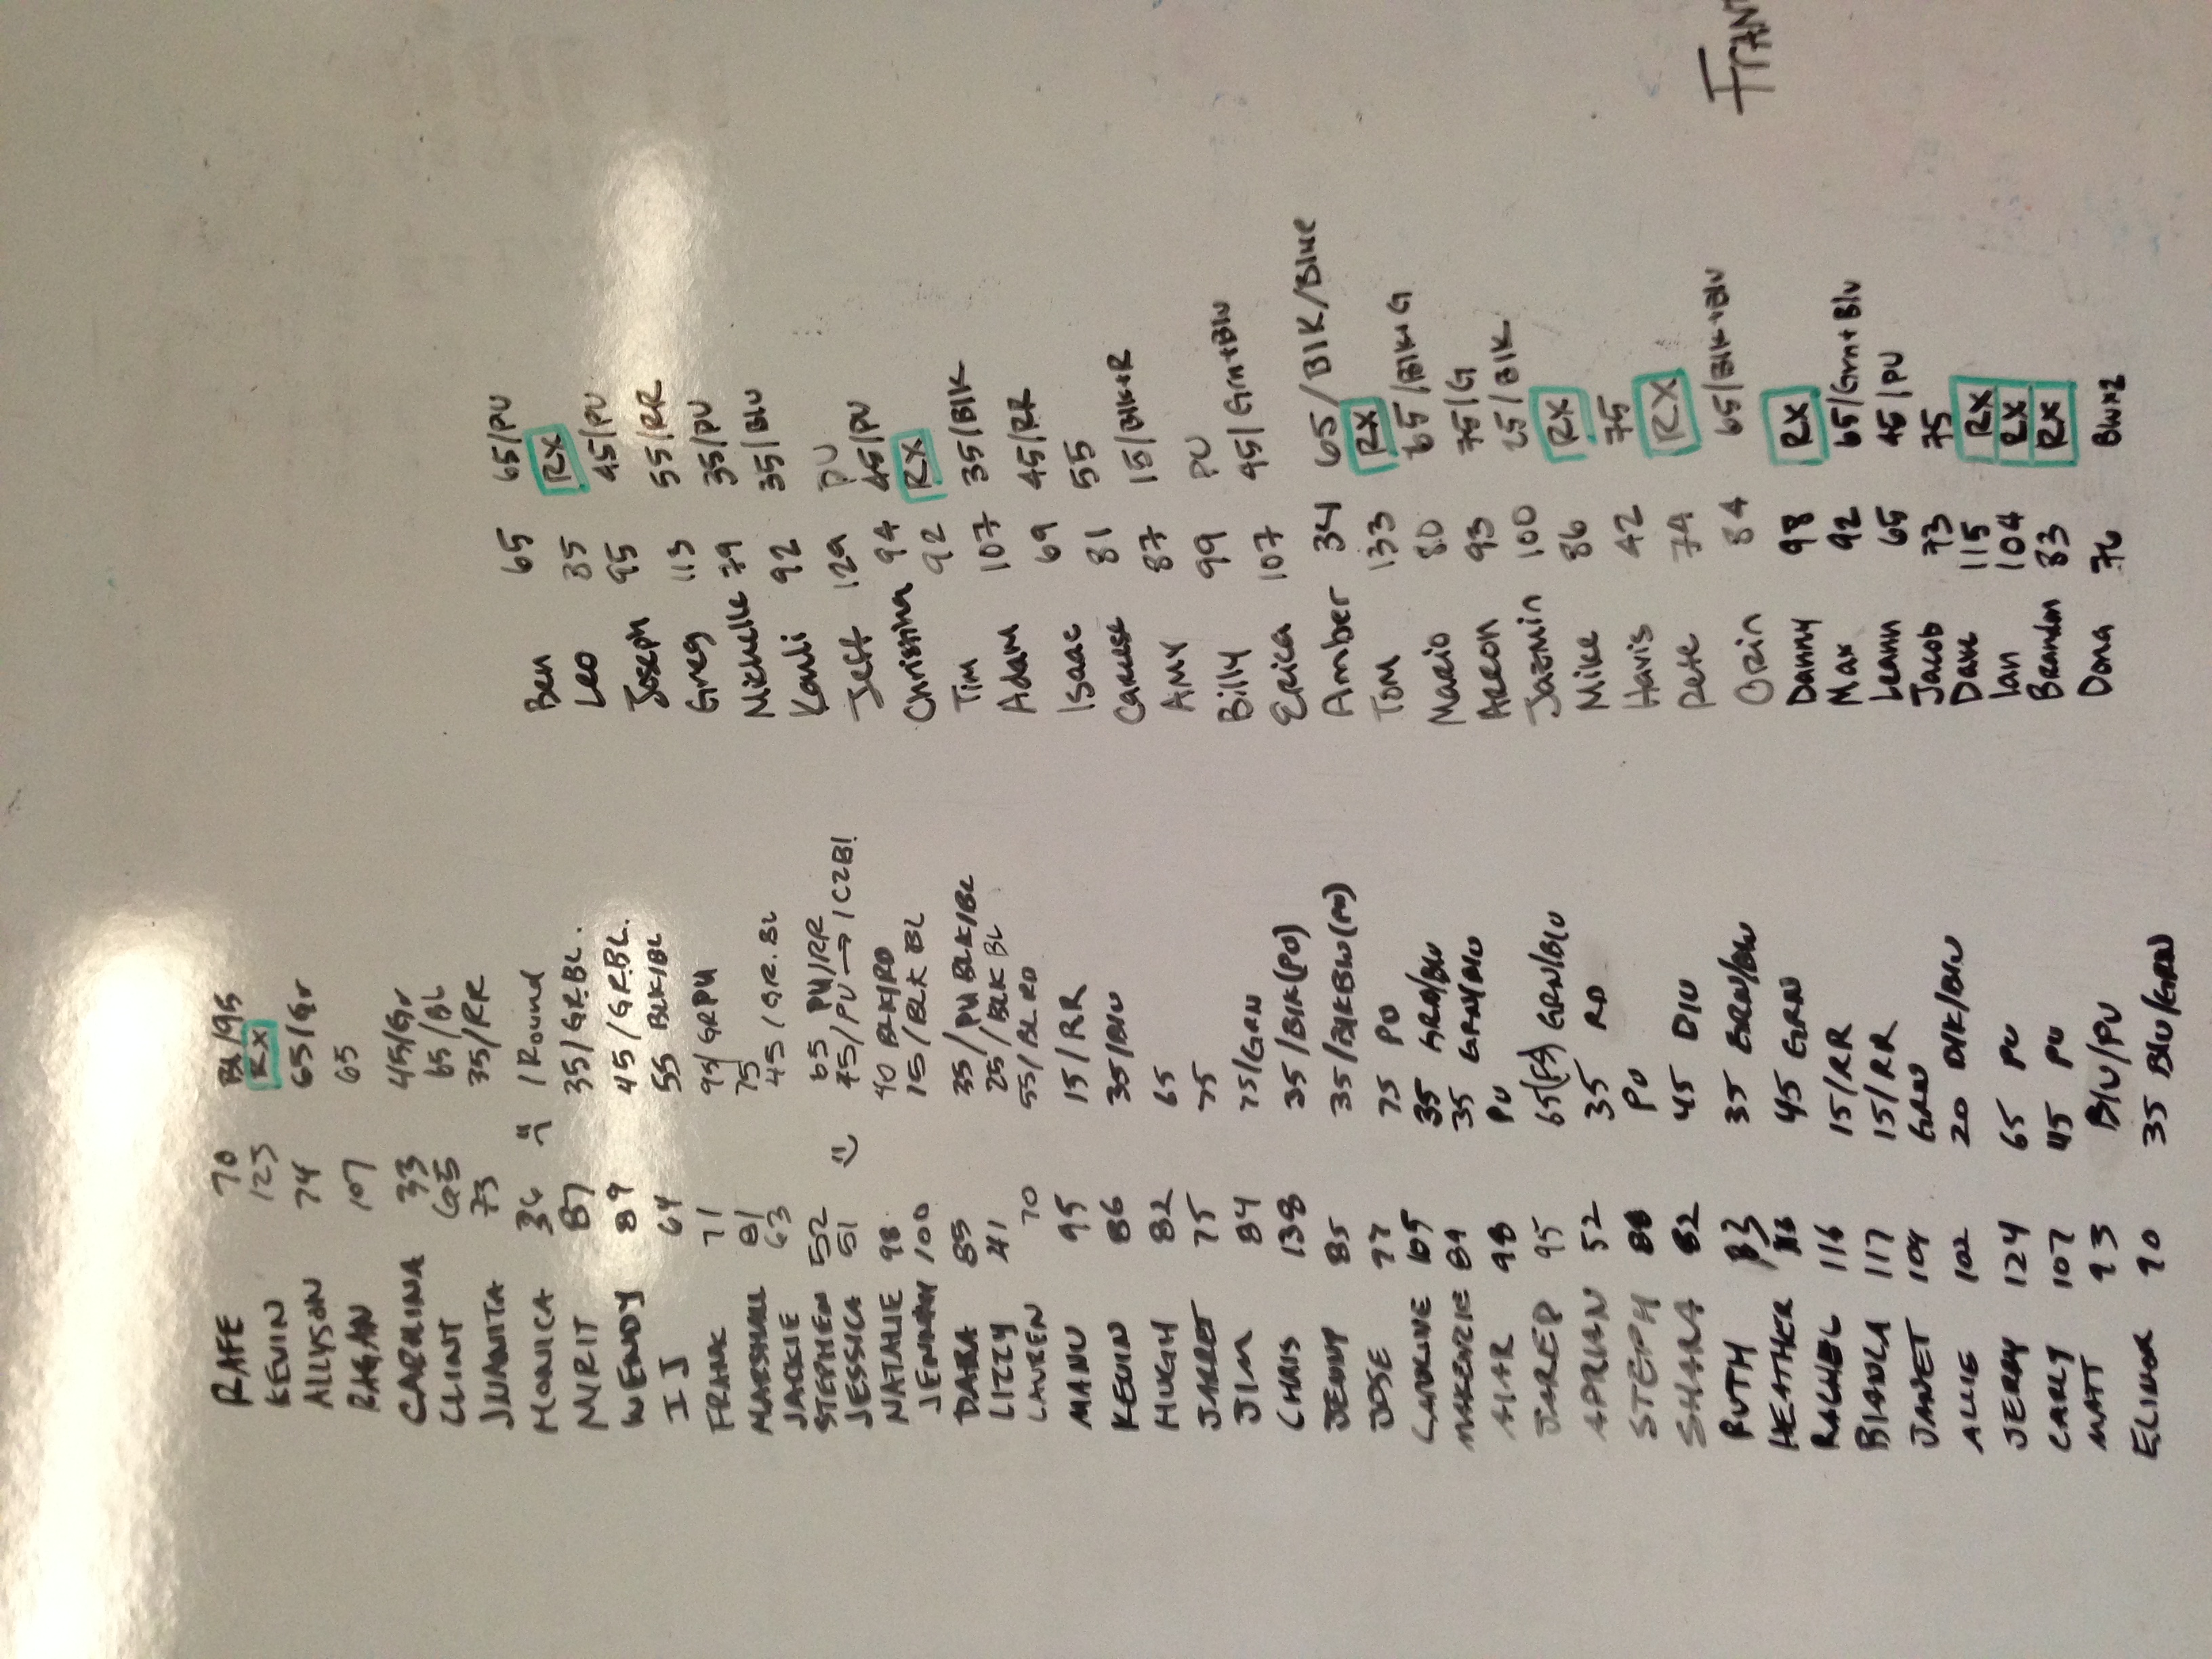 RAFE 70 BL/95
KEVIN 123 RX
ALLYSON 74 65/Gr
RAGAN 107 65
CABRINA 33 45/Gr
CLINT 65/BL
JUANITA 73 35/RR
MONICA 36 1 Round
NIRIT 87 35/GR.BL.
WENDY 89 45/GR.BL.
IJ 64 55 BLK/BL
FRANK 71 95/GRPU
MARSHALL 81 75
JACKIE 63 45/GR.BL
STEPHEN 52 65 PU/RR
JESSICA 51 75/PU → 1C2B1
NATALIE 98 40 BLK/RD
JENNAH 100 15/BLK BL
DARA 85 35/PU BLK/BL
LIZZY 41 25/BLK BL
LAUREN 70 55/BL RD
MANU 95 15/RR
KEVIN 86 35/BlU
HUGH 82 65
JARRET 75 75
JIM 84 75/GRN
CHRIS 138 35/BlK(PU)
JENNY 85 35/BlKBLU(PU)
JOSE 77 75 PU
105 35 GRN/BLU
MAKENZIE 89 35 GRN/BLU
98 PU
JARED 95 65 GRN/BLU
52 35 RD
STEPH 88 PU
SHARA 82 45 BlU
RUTH 83 35 GRN/BLU
HEATHER 45 GRN
RACHEL 116 15/RR
BIANCA 117 15/RR
JANET 104 GRN
ALLIE 102 20 BlK/BlU
JERRY 124 65 PU
CARLY 107 45 PU
MATT 93 BlU/PU
ELINOR 90 35 BLU/GRN
Ben 65 65/PU
Leo 85 RX
Joseph 95 45/PU
Greg 113 55/RR
Michelle 79 35/PU
Kauli 92 35/BlU
Jeff 129 PU
Christina 94 45/PU
Tim 92 RX
Adam 107 35/BlK
Isaac 69 45/RR
81 55
Amy 87 15/BlK+R
Billy 99 PU
Erica 107 45/Grn+Blu
Amber 34 65/BlK/Blue
Tom 133 RX
Mario 80 65/BlK+G
Arron 93 75/G
Jazmin 100 25/BlK
Mike 86 RX
Havis 42 75
Pete 74 RX
Orin 84 65/BlK+Blu
Danny 98 RX
Max 92 65/Grn+Blu
Leann 65 45/PU
Jacob 73 75
Dave 115 RX
Ian 104 RX
Brandon 83 RX
Dona 76 Blux2
FRAN